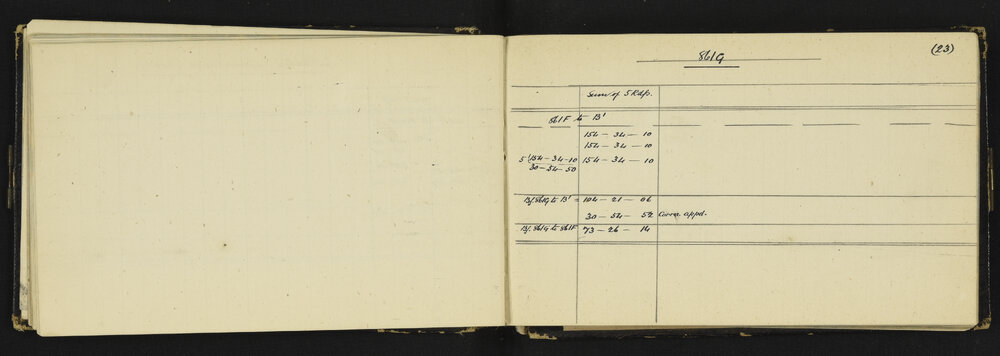 (23)
861G
Sum of 5 Rdgs.
861F to B'
154 - 34 - 10
154 - 34 - 10
5 (154 - 34 - 10 154 - 34 - 10
30 - 54 - 50
Bg. 861G to B' = 104 - 21 - 06
30 - 54 - 52 Corrn. appd.
Bg. 861G to 861F 73 - 26 - 14